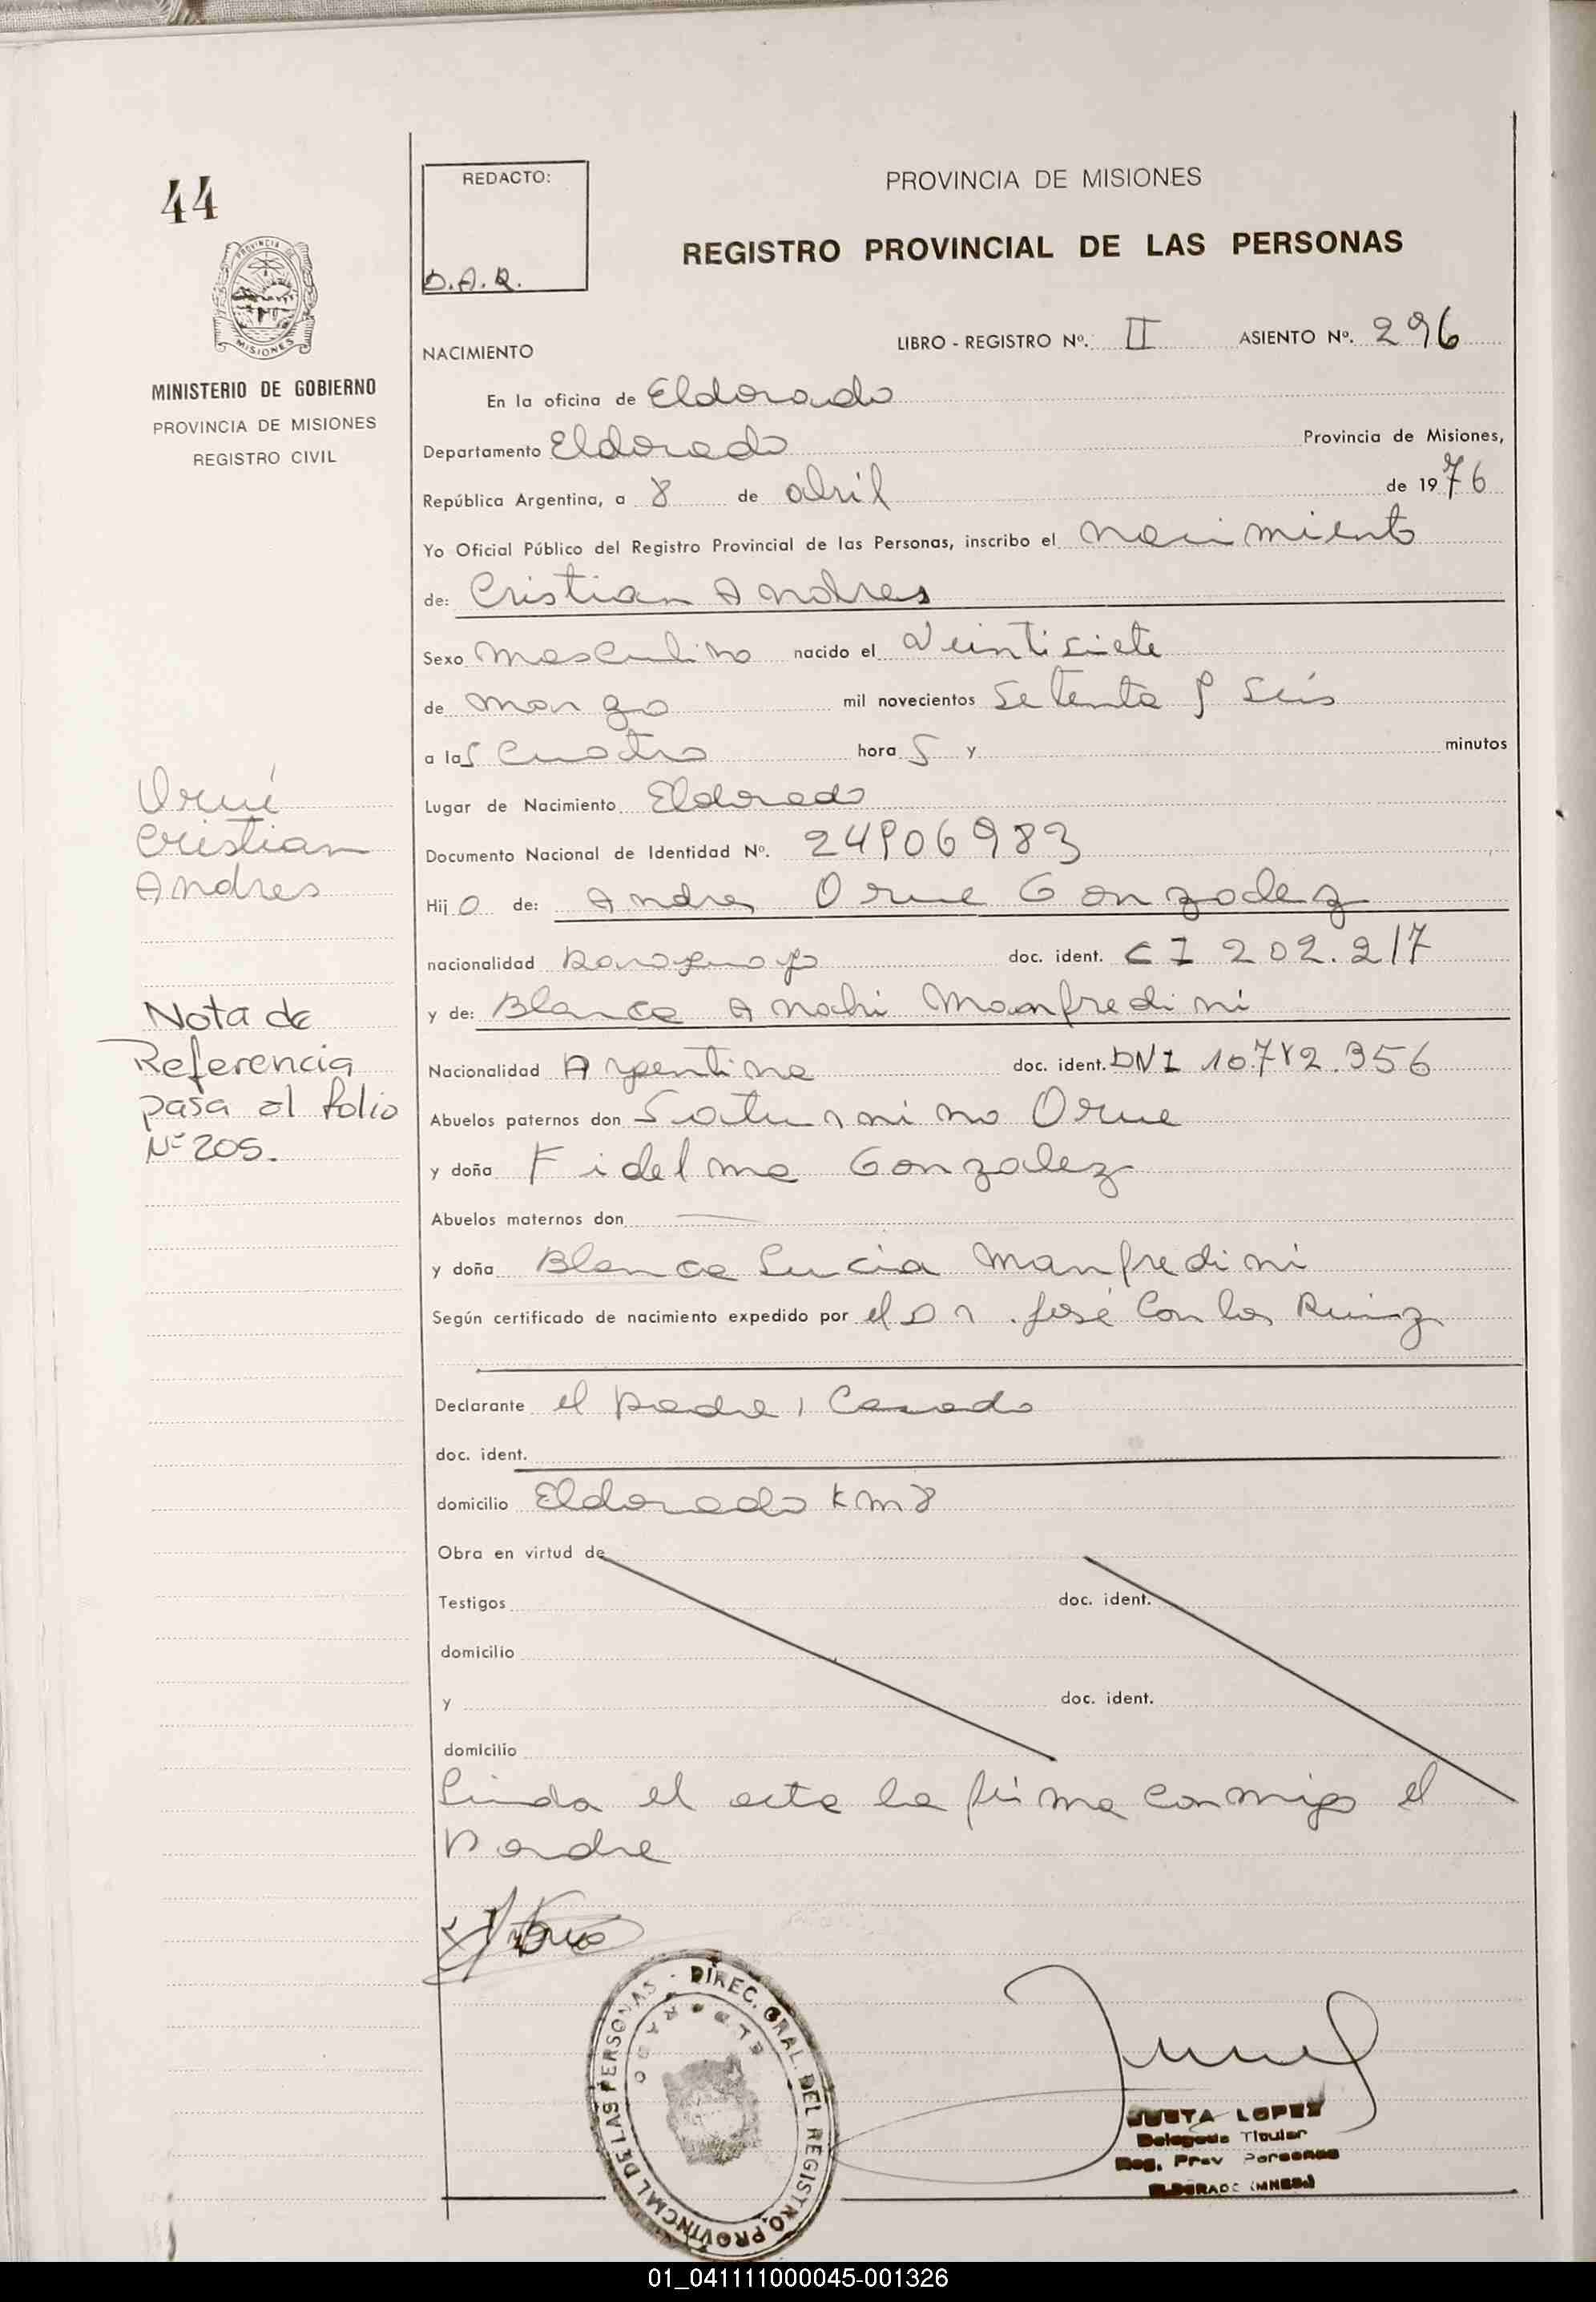 44
REDACTO:
D.A.R.
PROVINCIA DE MISIONES
REGISTRO PROVINCIAL DE LAS PERSONAS
PROVINCIA DE MISIONES
MINISTERIO DE GOBIERNO
PROVINCIA DE MISIONES
REGISTRO CIVIL
NACIMIENTO LIBRO - REGISTRO Nº. II ASIENTO Nº. 296
En la oficina de Eldorado
Departamento Eldorado Provincia de Misiones,
República Argentina, a 8 de abril de 1976
Yo Oficial Público del Registro Provincial de las Personas, inscribo el nacimiento
de: Cristian Andres
Sexo masculino nacido el veintisiete
de marzo mil novecientos setenta y seis
a las cuatro hora s y minutos
Lugar de Nacimiento Eldorado
Documento Nacional de Identidad Nº. 24906983
Hij o de: Andres Orue Gonzalez
nacionalidad Paraguayo doc. ident. CI 202.217
y de: Blanca Anahi Manfredini
Nacionalidad Argentina doc. ident. DNI 10.782.356
Abuelos paternos don Saturnino Orue
y doña Fidelma Gonzalez
Abuelos maternos don —
y doña Blanca Lucia Manfredini
Según certificado de nacimiento expedido por el Dr. José Carlos Ruiz
Declarante el padre, Casado
doc. ident.
domicilio Eldorado Km 8
Obra en virtud de
Testigos doc. ident.
domicilio
y doc. ident.
domicilio
Leida el acta la firma conmigo el
Padre
Orué
Cristian
Andres
Nota de
Referencia
pasa al folio
Nº 205.
DIREC. GRAL. DEL REGISTRO PROVINCIAL DE LAS PERSONAS
ELDORADO
JUSTA LOPEZ
Delegada Titular
Reg. Prov Personas
ELDORADO (MNES.)
01_041111000045-001326